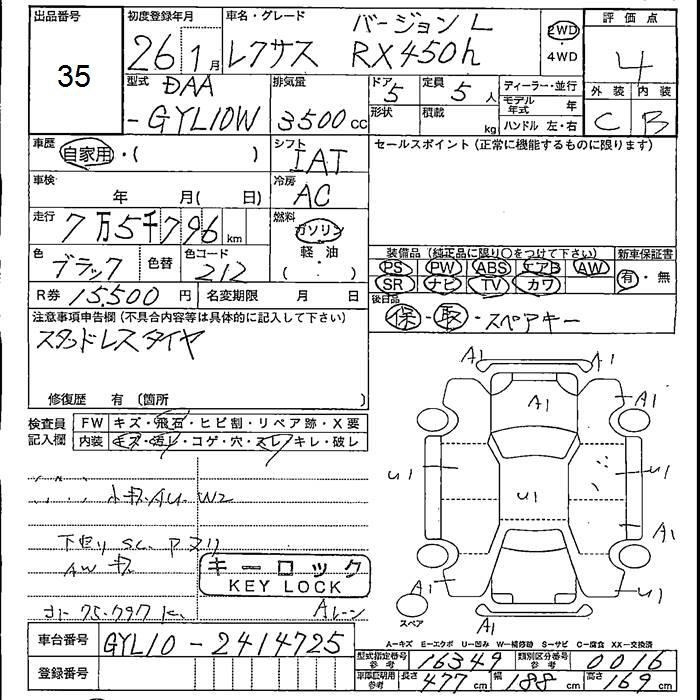 出品番号
35
初度登録年月
26年 1月
車名・グレード
バージョン L
レクサス RX450h
2WD
4WD
評価点
4
外装 内装
C B
型式 DAA
-GYL10W
排気量
3500cc
ドア 5
定員 5人
形状
積載 kg
ディーラー・並行
モデル年式 年
ハンドル 左・右
車歴
自家用・( )
シフト
IAT
セールスポイント (正常に機能するものに限ります)
車検
年 月( 日)
冷房
AC
走行
7万5千796km
燃料
ガソリン
軽・油
( ・ )
色
ブラック
色替
色コード
212
装備品 (純正品に限り○をつけて下さい)
新車保証書
PS PW ABS エアB AW
SR ナビ TV カワ
有・無
R券 15,500円
名変期限 月 日
後日品
保・取・スペアキー
注意事項申告欄 (不具合内容等は具体的に記入して下さい)
スタッドレスタイヤ
修復歴 有 〔箇所 〕
検査員
記入欄
FW キズ・飛石・ヒビ割・リペア跡・X要
内装 キズ・汚レ・コゲ・穴・スレ・キレ・破レ
AU. W2
AW キズ
75.797 K
キーロック
KEY LOCK
Aレーン
A1 A1
A1
A1
U1
U1
U1
A1
A1
U1
A1
スペア
A-キズ E-エクボ U-凹み W-補修跡 S-サビ C-腐食 XX-交換済
車台番号
GYL10-2414725
登録番号
型式指定番号
参考
16349
類別区分番号
参考
0016
車庫証明用
参考
長さ 477cm
幅 188cm
高さ 169cm